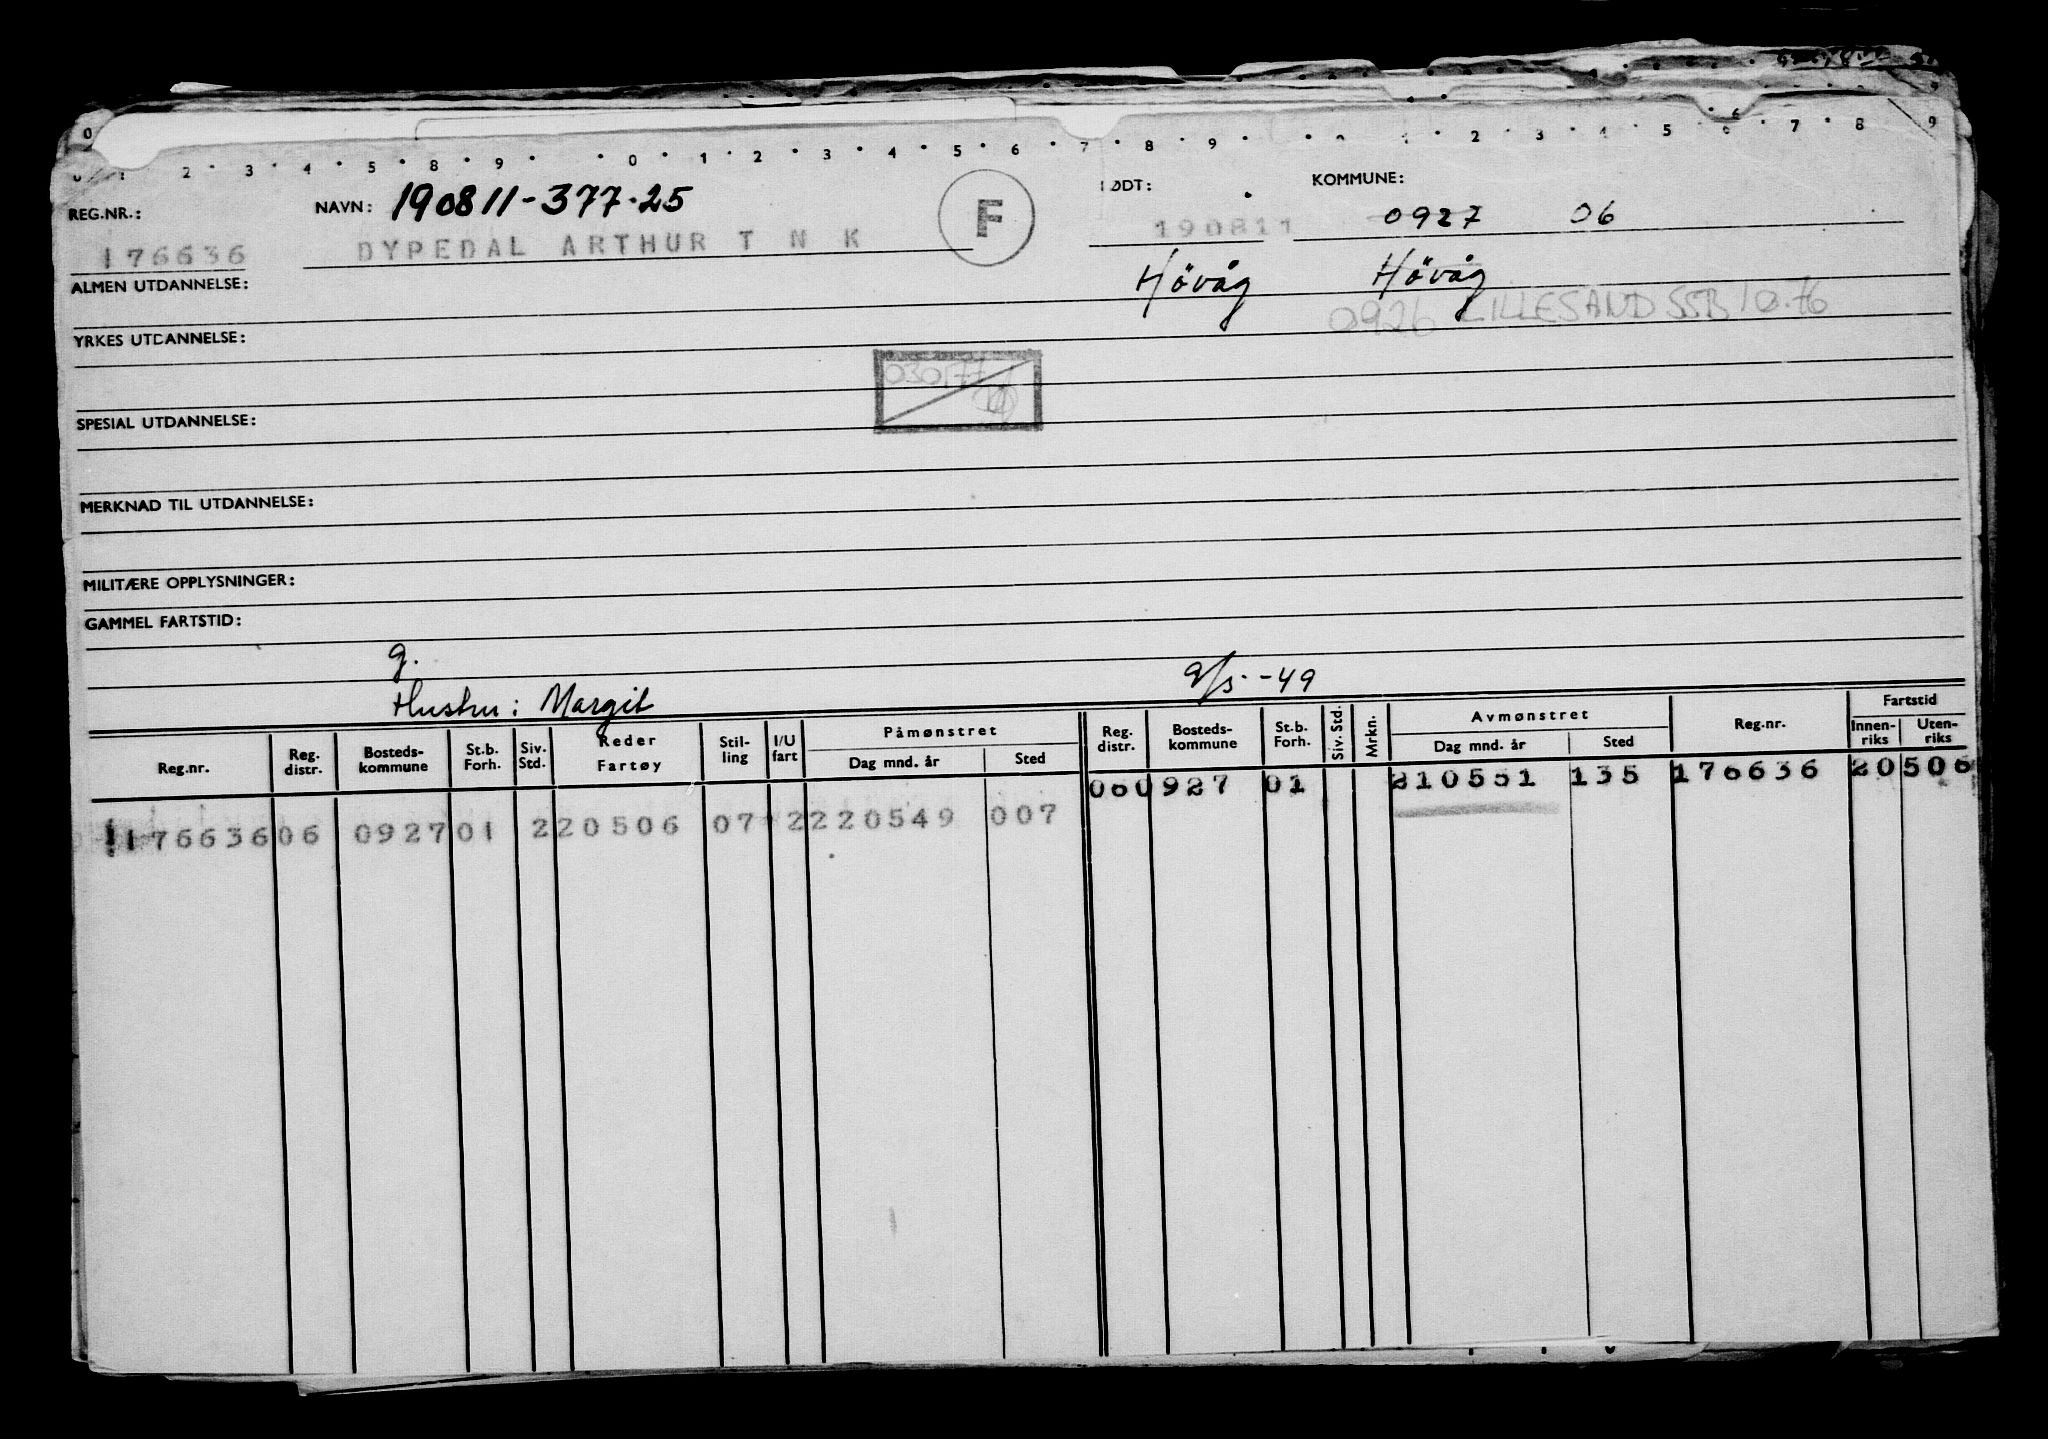 0 1 2 3 4 5 8 9 0 1 2 3 4 5 6 7 8 9 0 1 2 3 4 5 6 7 8 9
REG.NR.: NAVN: 190811-377.25 F FØDT: KOMMUNE:
176636 DYPEDAL ARTHUR T N K 190811 0927 06
ALMEN UTDANNELSE: Hövåg Hövåg
0926 LILLESAND SSB 10.76
YRKES UTDANNELSE:
030177
SPESIAL UTDANNELSE:
MERKNAD TIL UTDANNELSE:
MILITÆRE OPPLYSNINGER:
GAMMEL FARTSTID:
g.
Hustru: Margit 9/5--49
Reg.nr. Reg. distr. Bosteds-kommune St.b. Forh. Siv. Std. Reder Fartøy Stil-ling I/U fart Påmønstret Dag mnd. år Sted Reg. distr. Bosteds-kommune St.b. Forh. Siv. Std. Mrkn. Avmønstret Dag mnd. år Sted Reg.nr. Fartstid Innen-riks Uten-riks
060927 01 210551 135 176636 20506
176636 06 0927 01 2 20506 07 2 220549 007